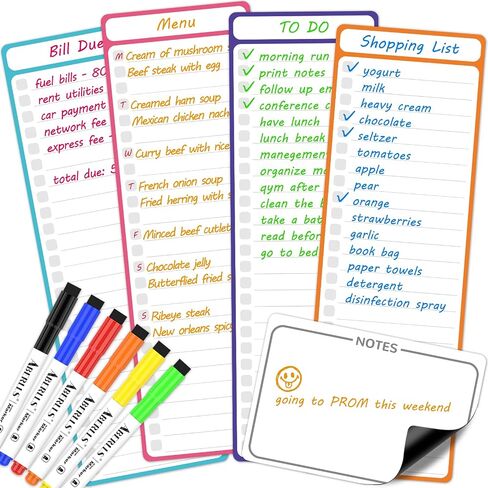 Bill Due
fuel bills - 80
rent utilities
car payment
network fee
express fee
total due: 5
Menu
M Cream of mushroom s
Beef steak with egg
T Creamed ham soup
Mexican chicken nach
W Curry beef with rice
T French onion soup
Fried herring with s
F Minced beef cutlet
S Chocolate jelly
Butterflied fried s
S Ribeye steak
New orleans spic
TO DO
morning run
print notes
follow up em
conference c
have lunch
lunch break
manegement
organize m
qym after
clean the b
take a bat
read before
go to bed
Shopping List
yogurt
milk
heavy cream
chocolate
seltzer
tomatoes
apple
pear
orange
strawberries
garlic
book bag
paper towels
detergent
disinfection spray
NOTES
going to PROM this weekend